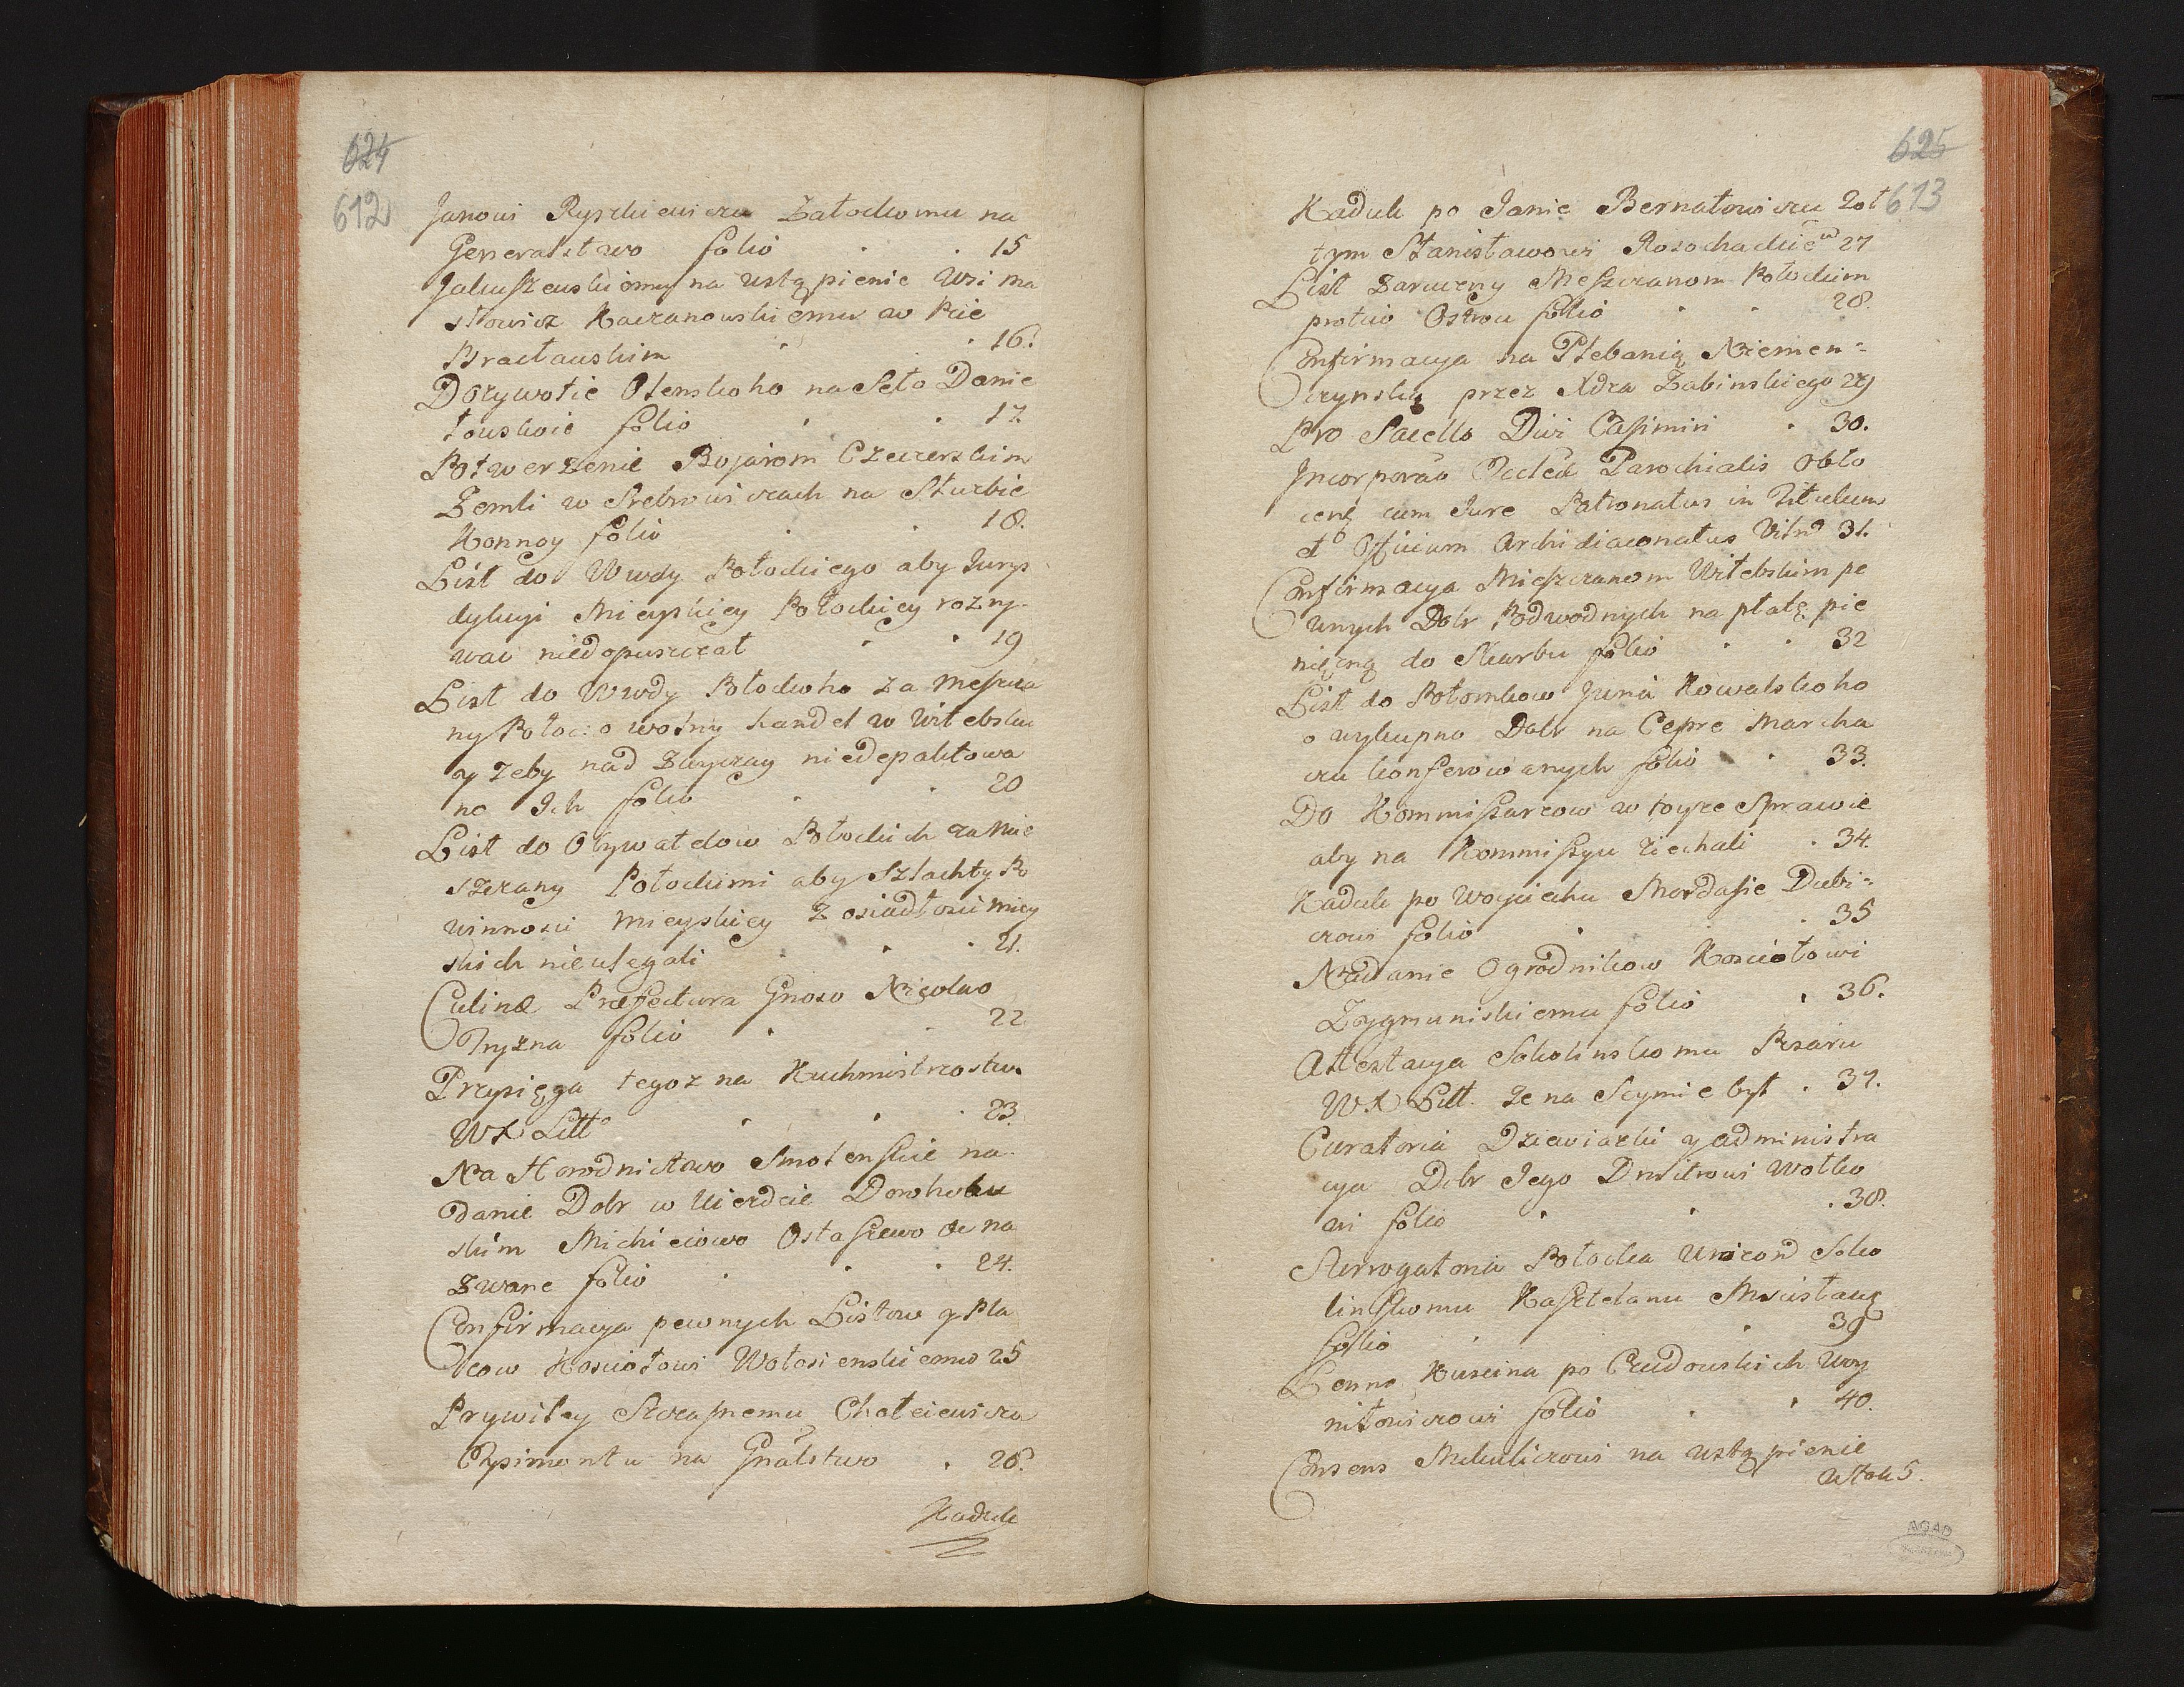 624
612
Janowi Ryszkiewiczu Załockomu na
Generalstwo folio 15
Jakuszewskiemu na ustąpienie Wsi Ma
słowicz Kaczanowskiemu w Pcie
Bracławskim 16.
Dożywotie Olenskoho na Seło Danie
łowskoie folio 17
Potwerżenie Bojarom Czeczerskim
Zemli w Srebrowiczach na Służbie
Konnoy folio 18.
List do Wwdy Połockiego aby Jurys
dykcyi Mieyskiey Połockiey rozry-
wać niedopuszczał 19
List do Wwdy Połockoho za Meszcza
ny Połoc: o wolny handel w Witebsku
y żeby nad zwyczay niedepaktowa
no Ich folio 20
List do Obywatelow Połockich za Mie
szczany Połockimi aby Szlachty Po
winnosci Mieyskiey z osiadłosci Miey
skich nieulegali 21.
Culinæ Præfectura Gnoso Nicolao
Tryzna folio 22
Przysięga tegoz na Kuchmistrzostwo
WX Litt° 23.
Na Horodnictwo Smolenskie na
danie Dobr w Uiezdzie Dorohobu
skim Michieiowo Ostaszewo de na
zwane folio 24.
Confirmacya pewnych Listow y Pla
cow Kosciołowi Wołosienskiemu 25
Prywiley Strasznemu Chalciewiczu
Ezpimontu na Gnalstwo 26.
Kaduk
625
613
Kaduk po Janie Bernatowiczu Zoł
tym Stanisławowi Rosochackie<sup>u</sup> 27
List Zaruczny Meszczanom Połockim
protiw Ostrou folio 28.
Confirmacya na Plebanią Niemen=
czynską przez Xdza Żabinskiego 29
Pro Sacello Divi Casimiri 30.
Incorporão Ecclea Parochialis Obło
cens cum Jure Patronatus in Titulum
et Officium Archidiaconatus Viln 31.
Confirmacya Mieszczanom Witebskim pe
wnych Dobr Podwodnych na płatę pie
nięzną do Skarbu folio 32
List do Potomkow Juria Kowalskoho
o wykupno Dobr na Cepre Marcha
czu konferowanych folio 33.
Do Kommissarzow w toyże Sprawie
aby na Kommissyu ziechali 34
Kaduk po Woyciechu Mordasie Dubi=
czowi folio 35
Nadanie Ogrodnikow Kosciołowi
Zygmuniskiemu folio 36.
Attestacya Sokolinskomu Pisaru
WX Litt. że na Seymie był 37.
Curatoria Dziewiazki y administra
cya Dobr Jego Dmitrowi Wołko
wi folio 38.
Surrogatoria Połocka Unicord Soko
linskomu Kasztelanu Mscisław
folio 39
Lenno Kuscina po Czudowskich Woy
niłowiczowi folio 40.
Consens Mikuliczowi na ustąpienie
Włok 5.
AGAD